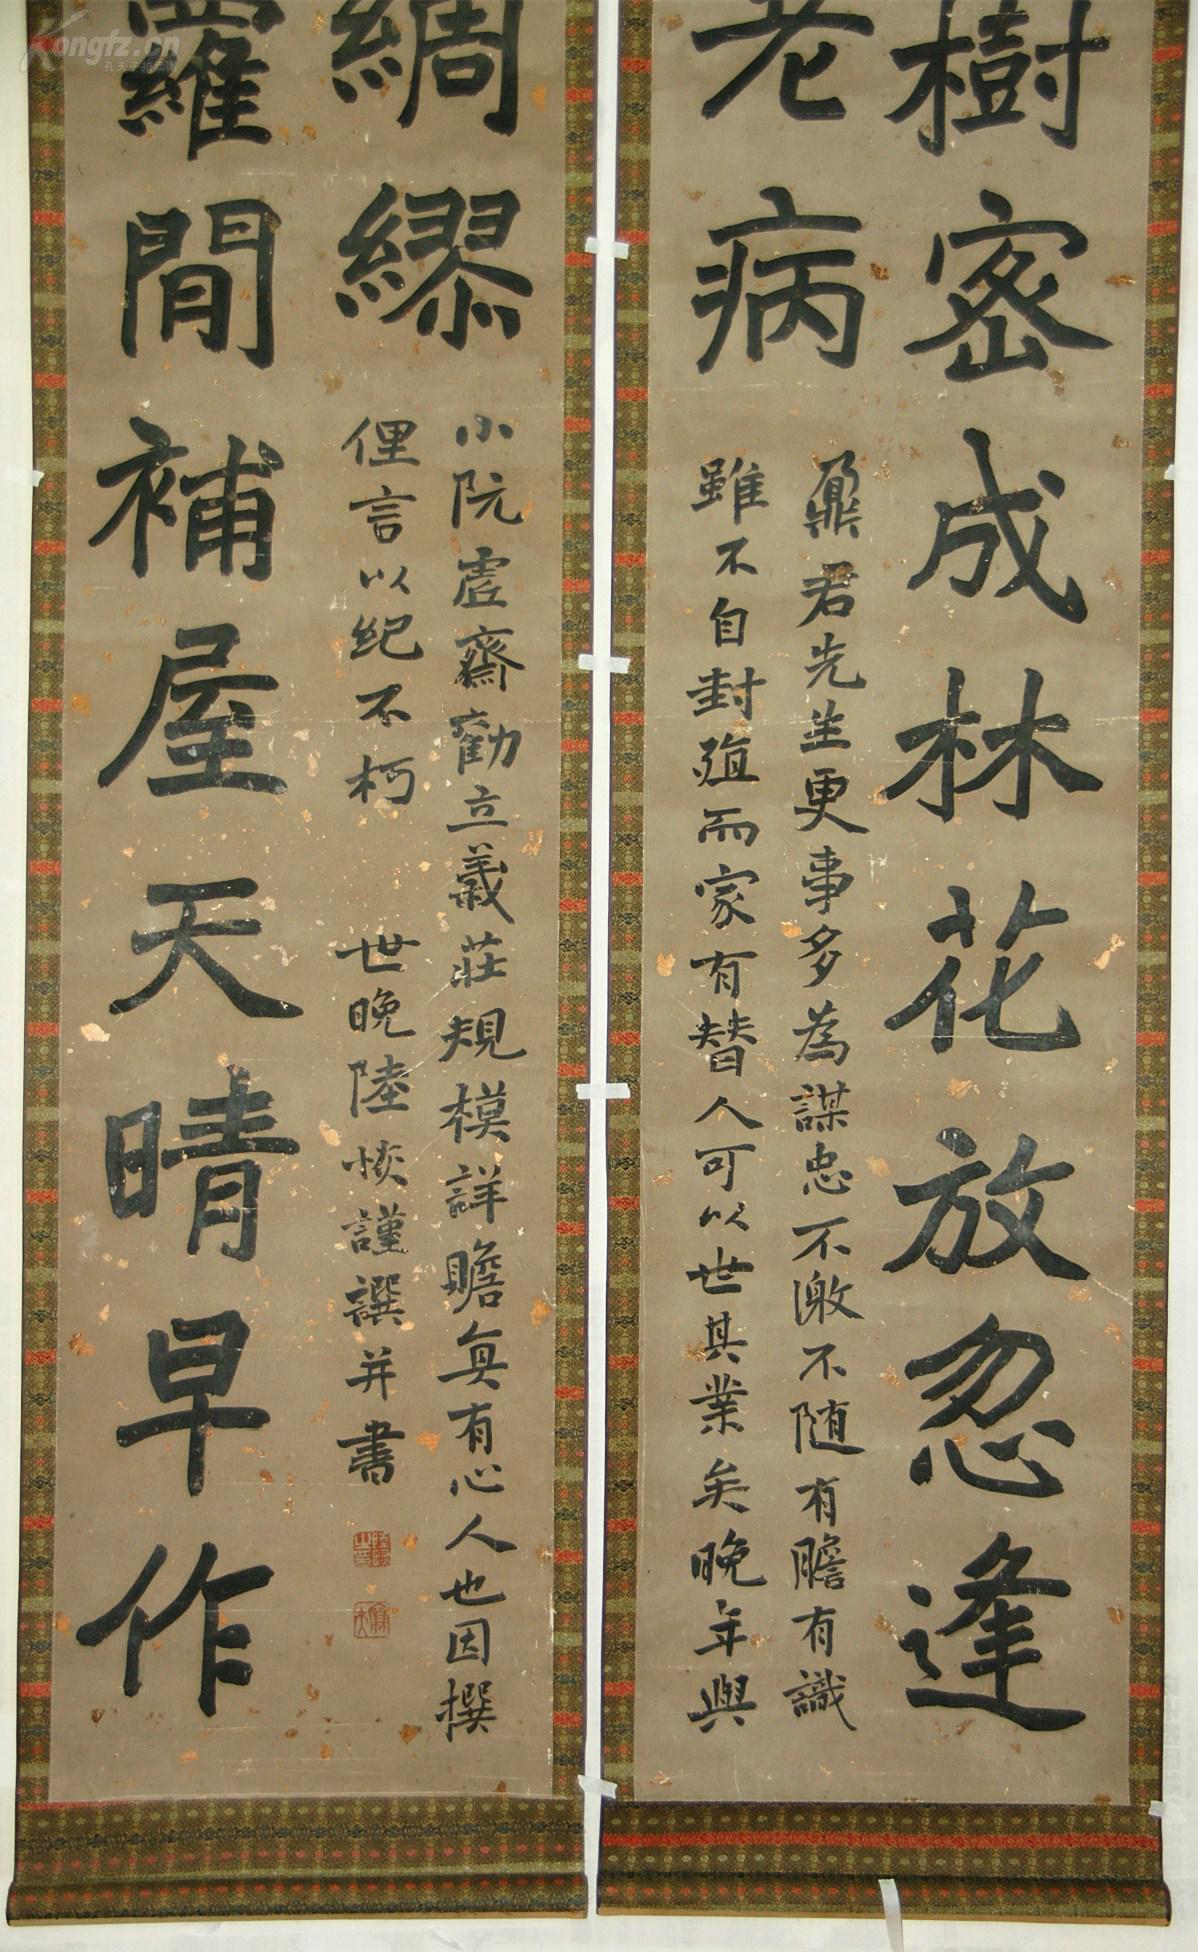 樹密成林花放忽逢
老病
鼐君先生更事多為謀忠不激不随有膽有識
雖不自封殖而家有替人可以世其業矣晚年與
綢繆
小阮虛齋勸立義莊規模詳贍真有心人也因撰
俚言以紀不朽
世晚陸恢謹譔并書
蘿閒補屋天晴早作
Kongfz.cn